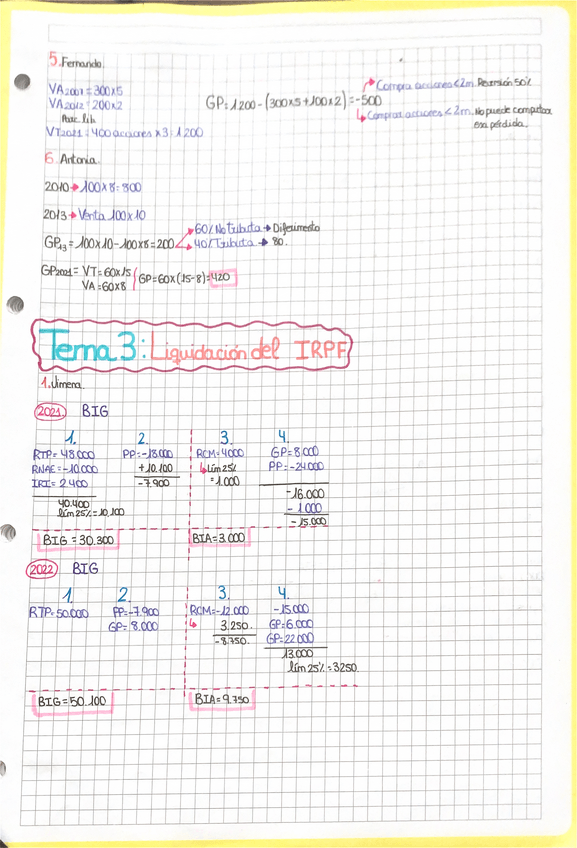 5. Fernando.
VA2007 = 300x5
VA2012 = 200x2
VT2021 = 400 acciones x 3 = 1200
GP = 1200 - (300x5 + 100x2) = -500
Compra acciones < 2m. 50%
Compra acciones < 2m. No puede computar
esa pérdida.
6. Antonia.
2010 → 100x8 = 800
2013 → Venta 100x10
GP13 = 100x10 - 100x8 = 200
60% No tributa → Diferimento
40% Tributa → 80.
GP2021 = VT = 60x15
VA = 60x8
GP = 60x(15-8) = 420
Tema 3: Liquidación del IRPF
1. Jimena.
2021. BIG
1. 2. 3. 4.
RTP = 48.000 PP = -18.000 RCM = 4000 GP = 8.000
RNAE = -10.000 + 10.100 lím 25% PP = -24.000
IRI = 2.400 -7.900 = 1.000
40.400 -16.000
lím 25% = 10.100 - 1.000
-15.000
BIG = 30.300 BIA = 3.000
2022 BIG
1. 2. 3. 4.
RTP = 50.000 PP = -7.900 RCM = -12.000 -15.000
GP = 8.000 3.250 GP = 6.000
-8.750. GP = 22.000
13.000
lím 25% = 3250
BIG = 50.100 BIA = 9.750